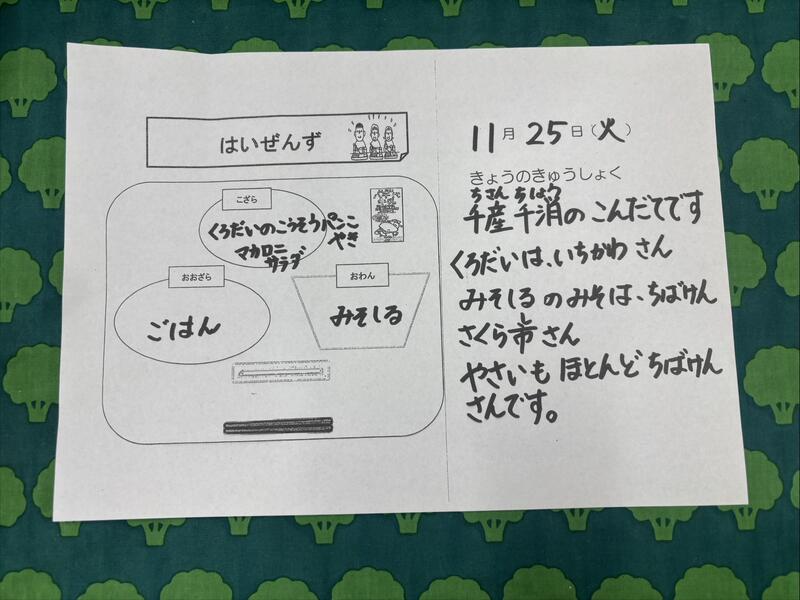 はいぜんず
こざら
くろだいのこうそうパンこ
やき
マカロニ
サラダ
おおざら
ごはん
おわん
みそしる
11月25日(火)
きょうのきゅうしょく
ちさん ちしょう
千産千消のこんだてです
くろだいは、いちかわさん
みそしるのみそは、ちばけん
し
さくら市さん
やさいもほとんどちばけん
さんです。